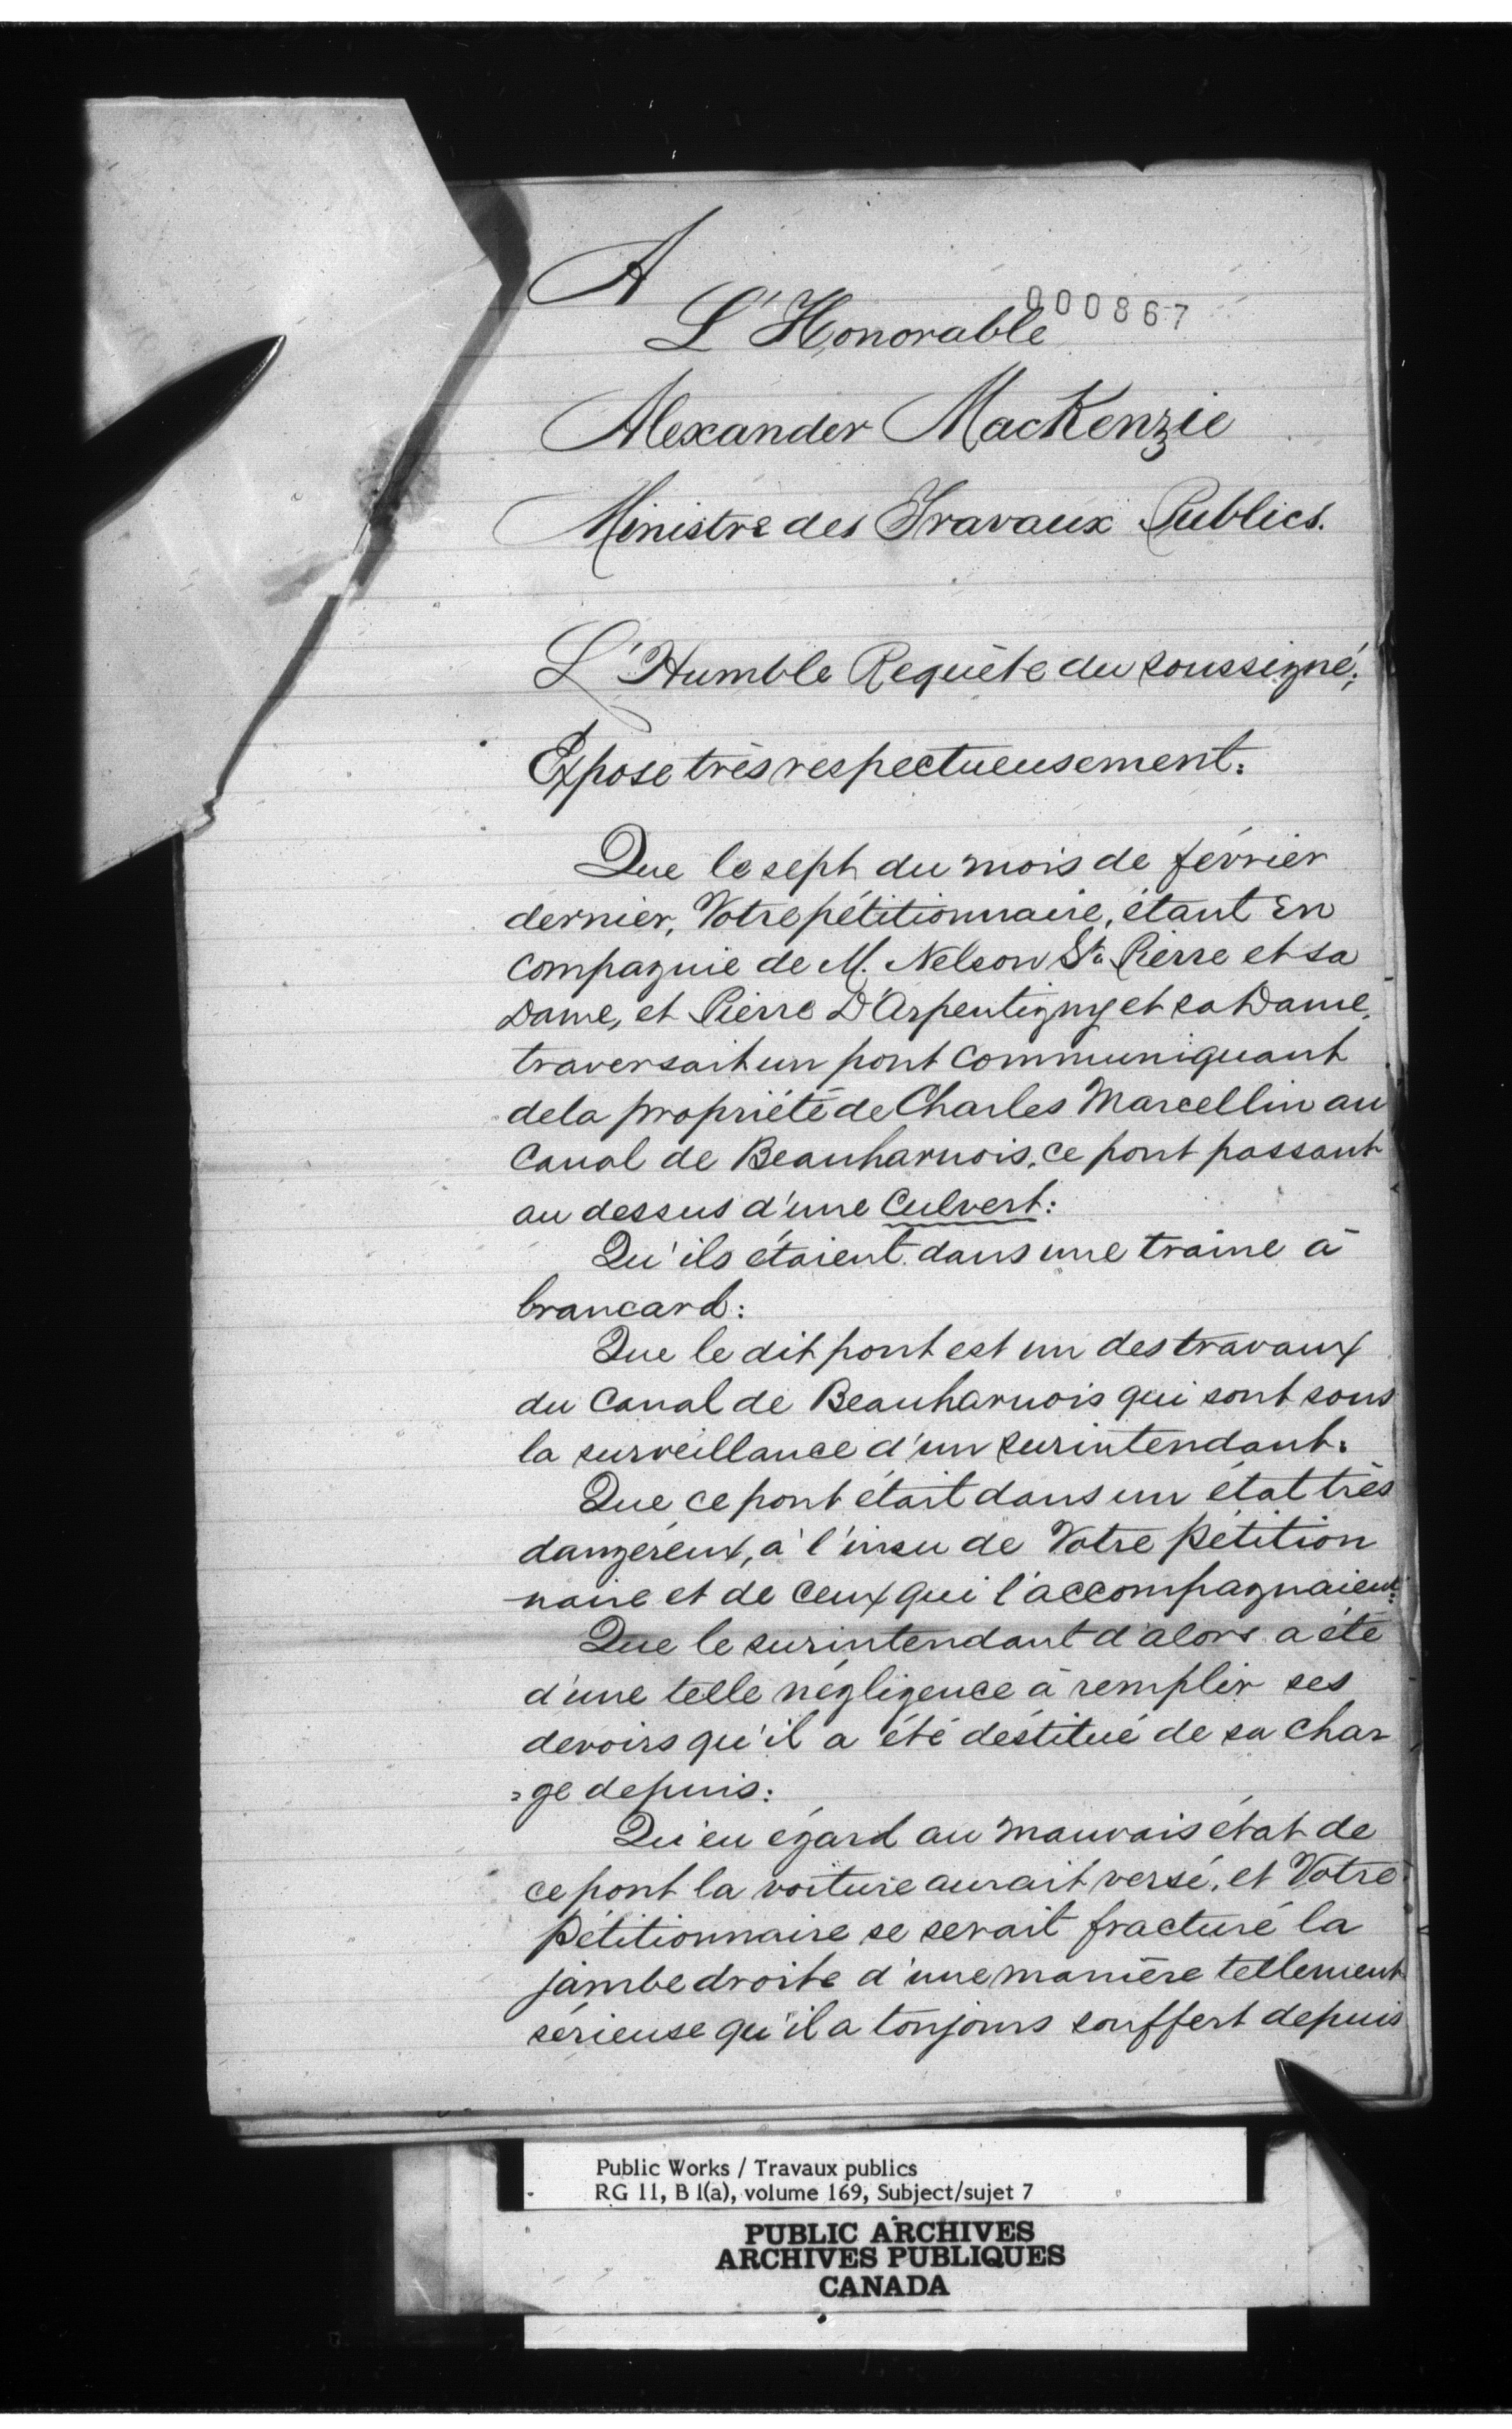 A
000867
L'Honorable
Alexander MacKenzie
Ministre des Travaux Publics.
L'Humble Requête du soussigné;
Expose très respectueusement:
Que le sept du mois de février
dernier, Votre pétitionnaire, étant En
compagnie de M. Nelson St. Pierre et sa
Dame, et Pierre D'Arpentigny et sa Dame,
traversait un pont communiquant
de la propriété de Charles Marcellin au
Canal de Beauharnois, ce pont passant
au dessus d'une Culvert:
Qu'ils étaient dans une traine à
brancard:
Que le dit pont est un des travaux
du Canal de Beauharnois qui sont sous
la surveillance d'un surintendant:
Que ce pont était dans un état très
dangéreux, à l'insu de Votre Pétition
-naire et de ceux qui l'accompagnaient:
Que le surintendant d'alors a été
d'une telle négligence à remplir ses
devoirs qu'il a été déstitué de sa char
=ge depuis:
Qu'eu égard au mauvais état de
ce pont la voiture aurait versé, et Votre
Pétitionnaire se serait fracturé la
jambe droite d'une manière tellement
sérieuse qu'il a toujours souffert depuis
Public Works / Travaux publics
RG 11, B 1(a), volume 169, Subject/sujet 7
PUBLIC ARCHIVES
ARCHIVES PUBLIQUES
CANADA